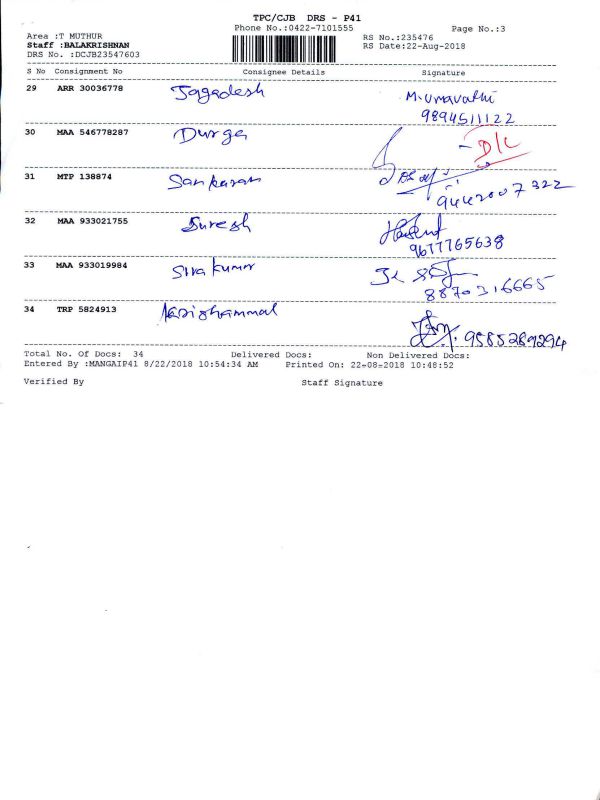 TPC/CJB DRS - P41
Phone No.:0422-7101555
Page No.:3
Area :T MUTHUR
RS No.:235476
Staff :BALAKRISHNAN
RS Date:22-Aug-2018
DRS No. :DCJB23547603
S No Consignment No Consignee Details Signature
29 ARR 30036778 Jagadesh M.Umavathi
9894511122
30 MAA 546778287 Durga - D/L
31 MTP 138874 Sankaran
9442007322
32 MAA 933021755 Suresh
9677765638
33 MAA 933019984 Siva kumar
8870316665
34 TRP 5824913 9585289294
Total No. Of Docs: 34 Delivered Docs: Non Delivered Docs:
Entered By :MANGAIP41 8/22/2018 10:54:34 AM Printed On: 22-08-2018 10:48:52
Verified By Staff Signature